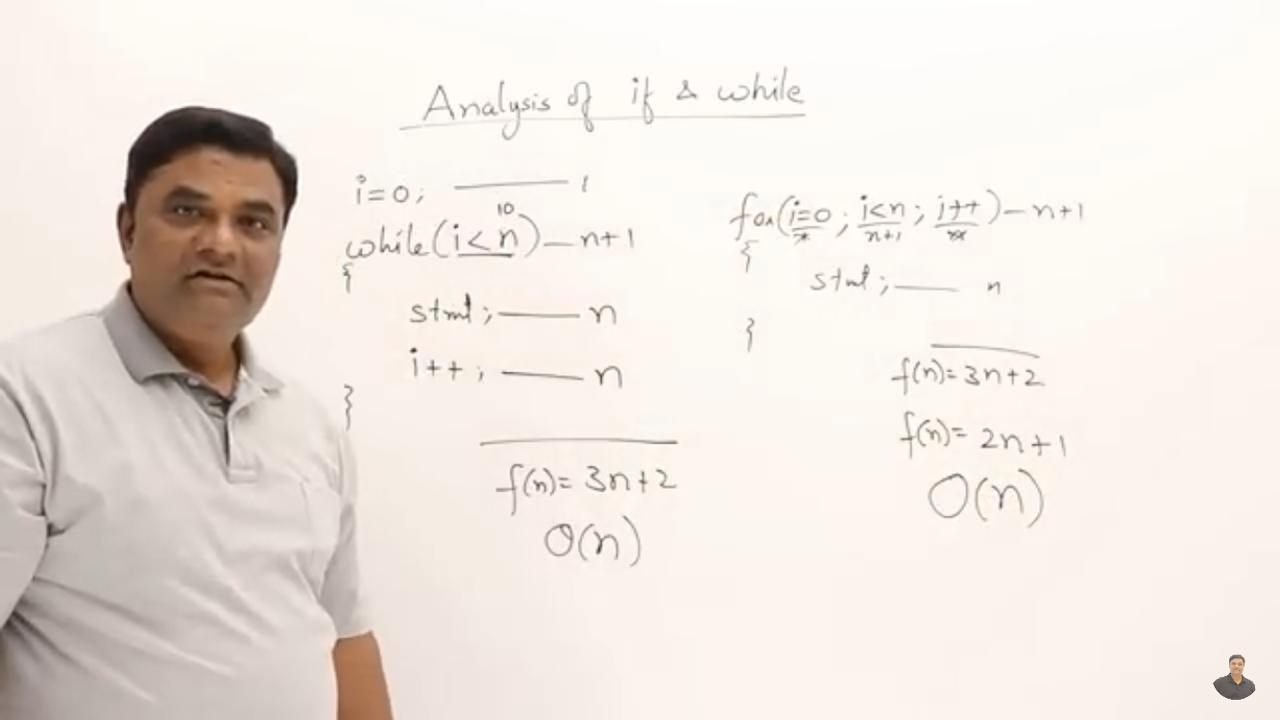 Analysis of if & while
i=0; 1
10
while(i<n) n+1
{
stmt; n
i++; n
}
f(n)= 3n+2
O(n)
for(i=0; i<n; i++) n+1
n+1
{
stmt; n
}
f(n)= 3n+2
f(n)= 2n+1
O(n)